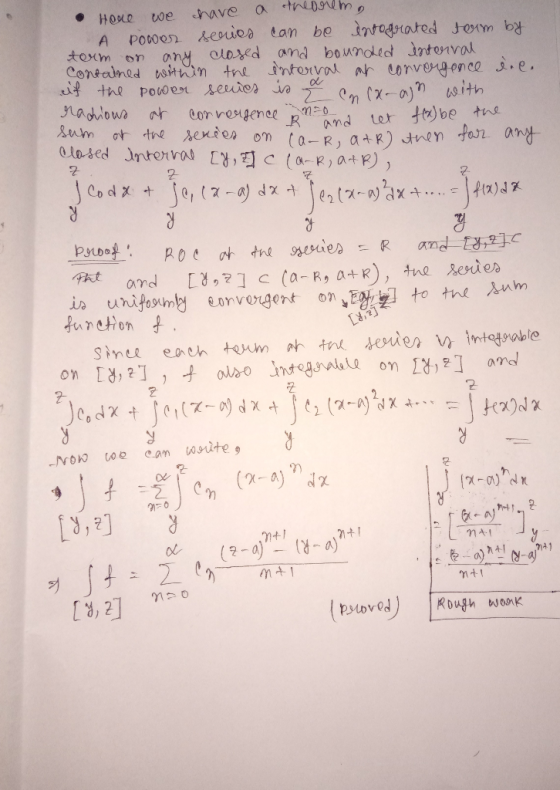 • Here we have a theorem,
A power series can be integrated term by
term on any closed and bounded interval
contained within the interval of convergence i.e.
if the power series is ∑_{n=0}^{∞} c_n (x-a)^n with
radious of convergence R and let f(x) be the
sum of the series on (a-R, a+R) then for any
closed interval [y,z] ⊂ (a-R, a+R),
∫_y^z c_0 dx + ∫_y^z c_1 (x-a) dx + ∫_y^z c_2 (x-a)^2 dx + .... = ∫_y^z f(x) dx
Proof: ROC of the series = R and [y,z] ⊂
and [y,z] ⊂ (a-R, a+R), the series
is uniformly convergent on [y,z] to the sum
function f.
Since each term of the series is integrable
on [y,z], f also integrable on [y,z] and
∫_y^z c_0 dx + ∫_y^z c_1 (x-a) dx + ∫_y^z c_2 (x-a)^2 dx + ... = ∫_y^z f(x) dx
Now we can write,
∫_{[y,z]} f = ∑_{n=0}^{∞} ∫_y^z c_n (x-a)^n dx
⇒ ∫_{[y,z]} f = ∑_{n=0}^{∞} c_n ((z-a)^{n+1} - (y-a)^{n+1})/(n+1)
(proved)
∫_y^z (x-a)^n dx
= [(x-a)^{n+1}/(n+1)]_y^z
= ((z-a)^{n+1} - (y-a)^{n+1})/(n+1)
Rough work